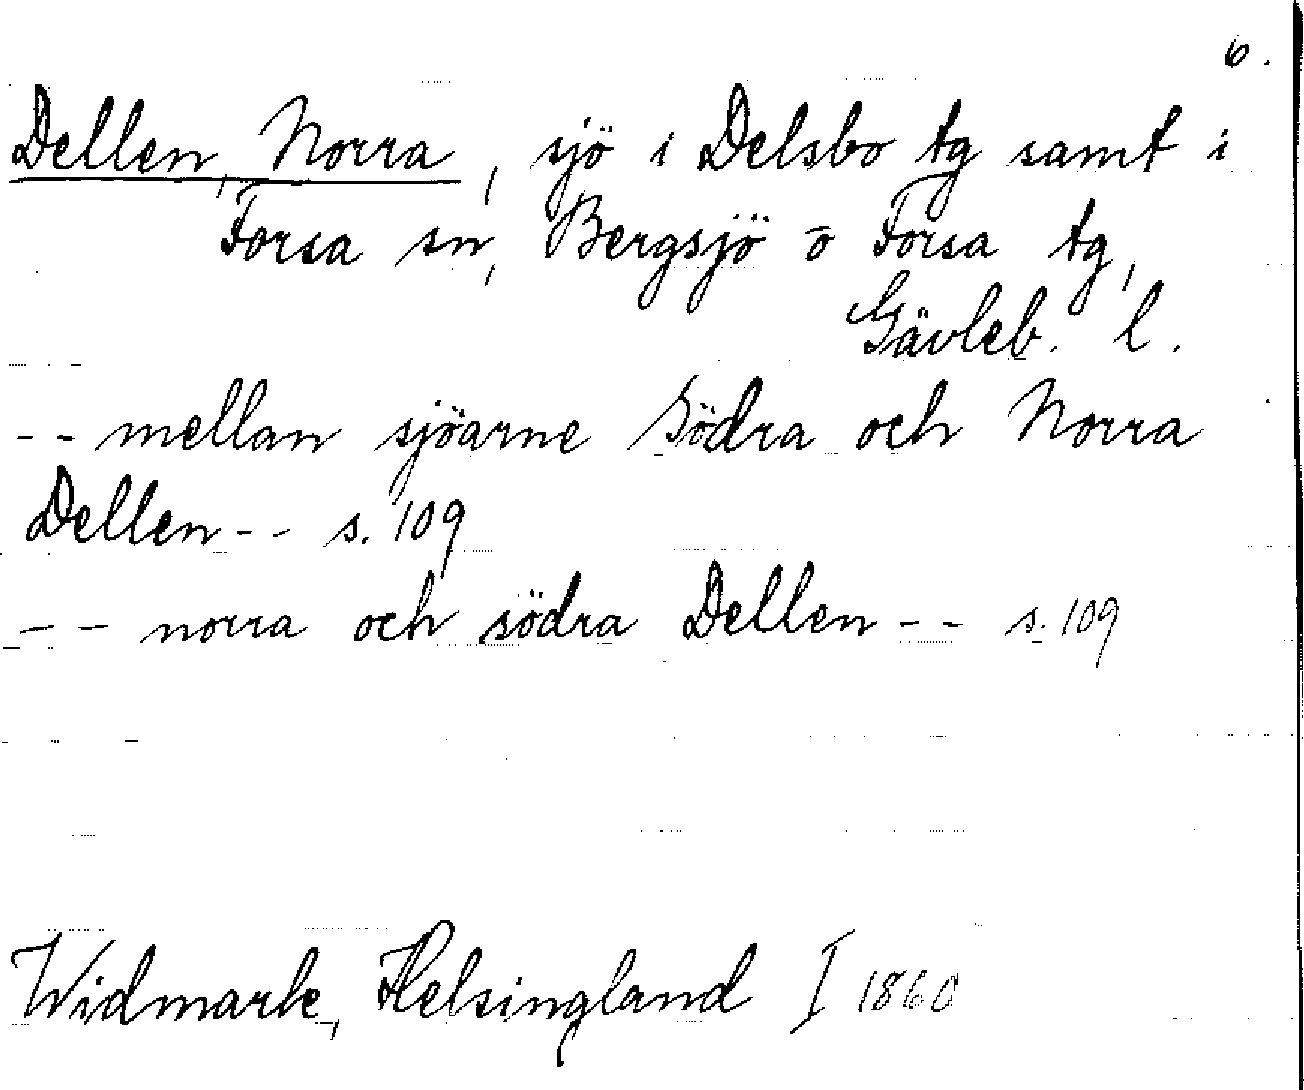 6.
Dellen, Norra, sjö i Delsbo tg samt i
Forsa sn, Bergsjö o Forsa tg,
Gävleb. l.
-- mellan sjöarne Södra och Norra
Dellen -- s. 109
-- norra och södra Dellen -- s. 109
Widmark, Helsingland I 1860